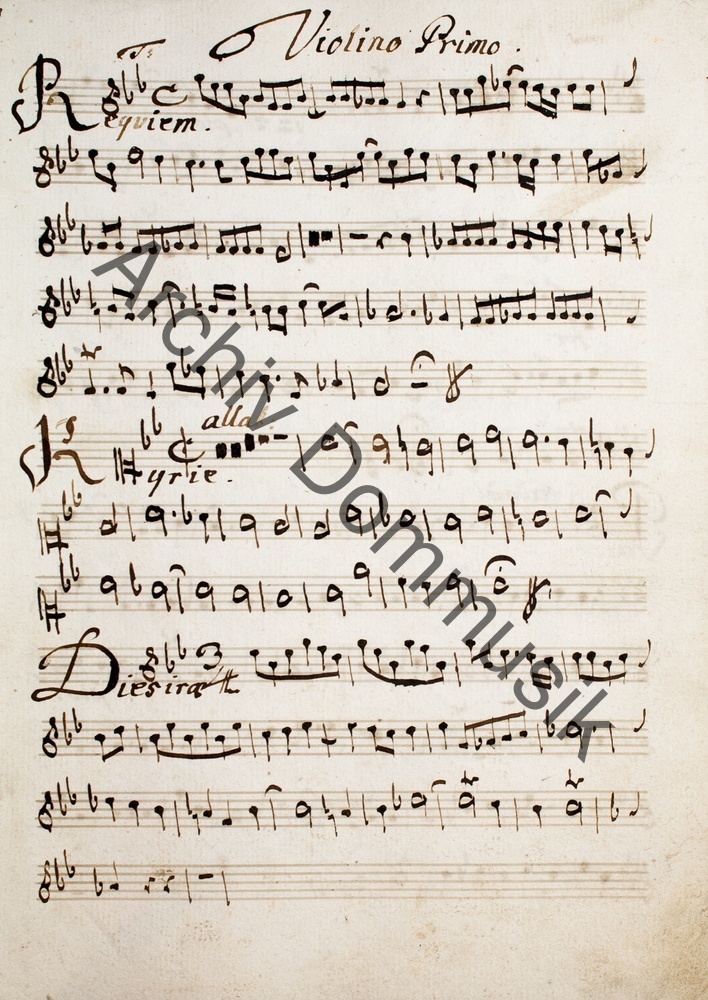 Violino Primo.
Ts
Requiem.
alla
Kyrie.
Dies irae
3
Archiv Dommusik